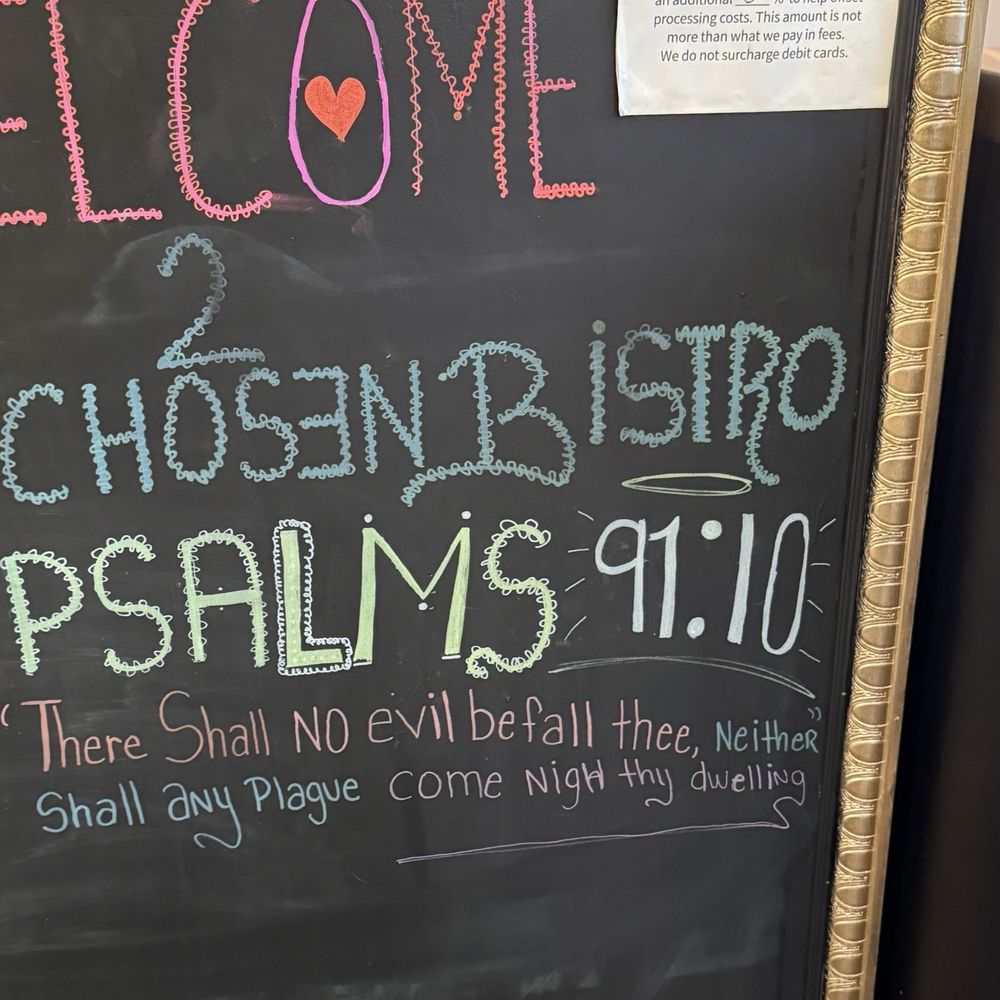 ELCOME
an additional % to help offset
processing costs. This amount is not
more than what we pay in fees.
We do not surcharge debit cards.
2
CHOSEN BISTRO
PSALMS 91:10
"There Shall NO evil befall thee, Neither"
Shall any Plague come Nigh thy dwelling